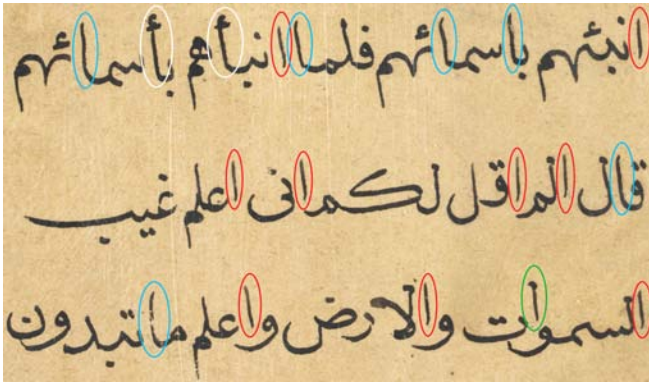 انبئهم باسمائهم فلما انبأهم بأسمائهم
قال الم اقل لكم انى اعلم غيب
السموات والارض واعلم ماتبدون